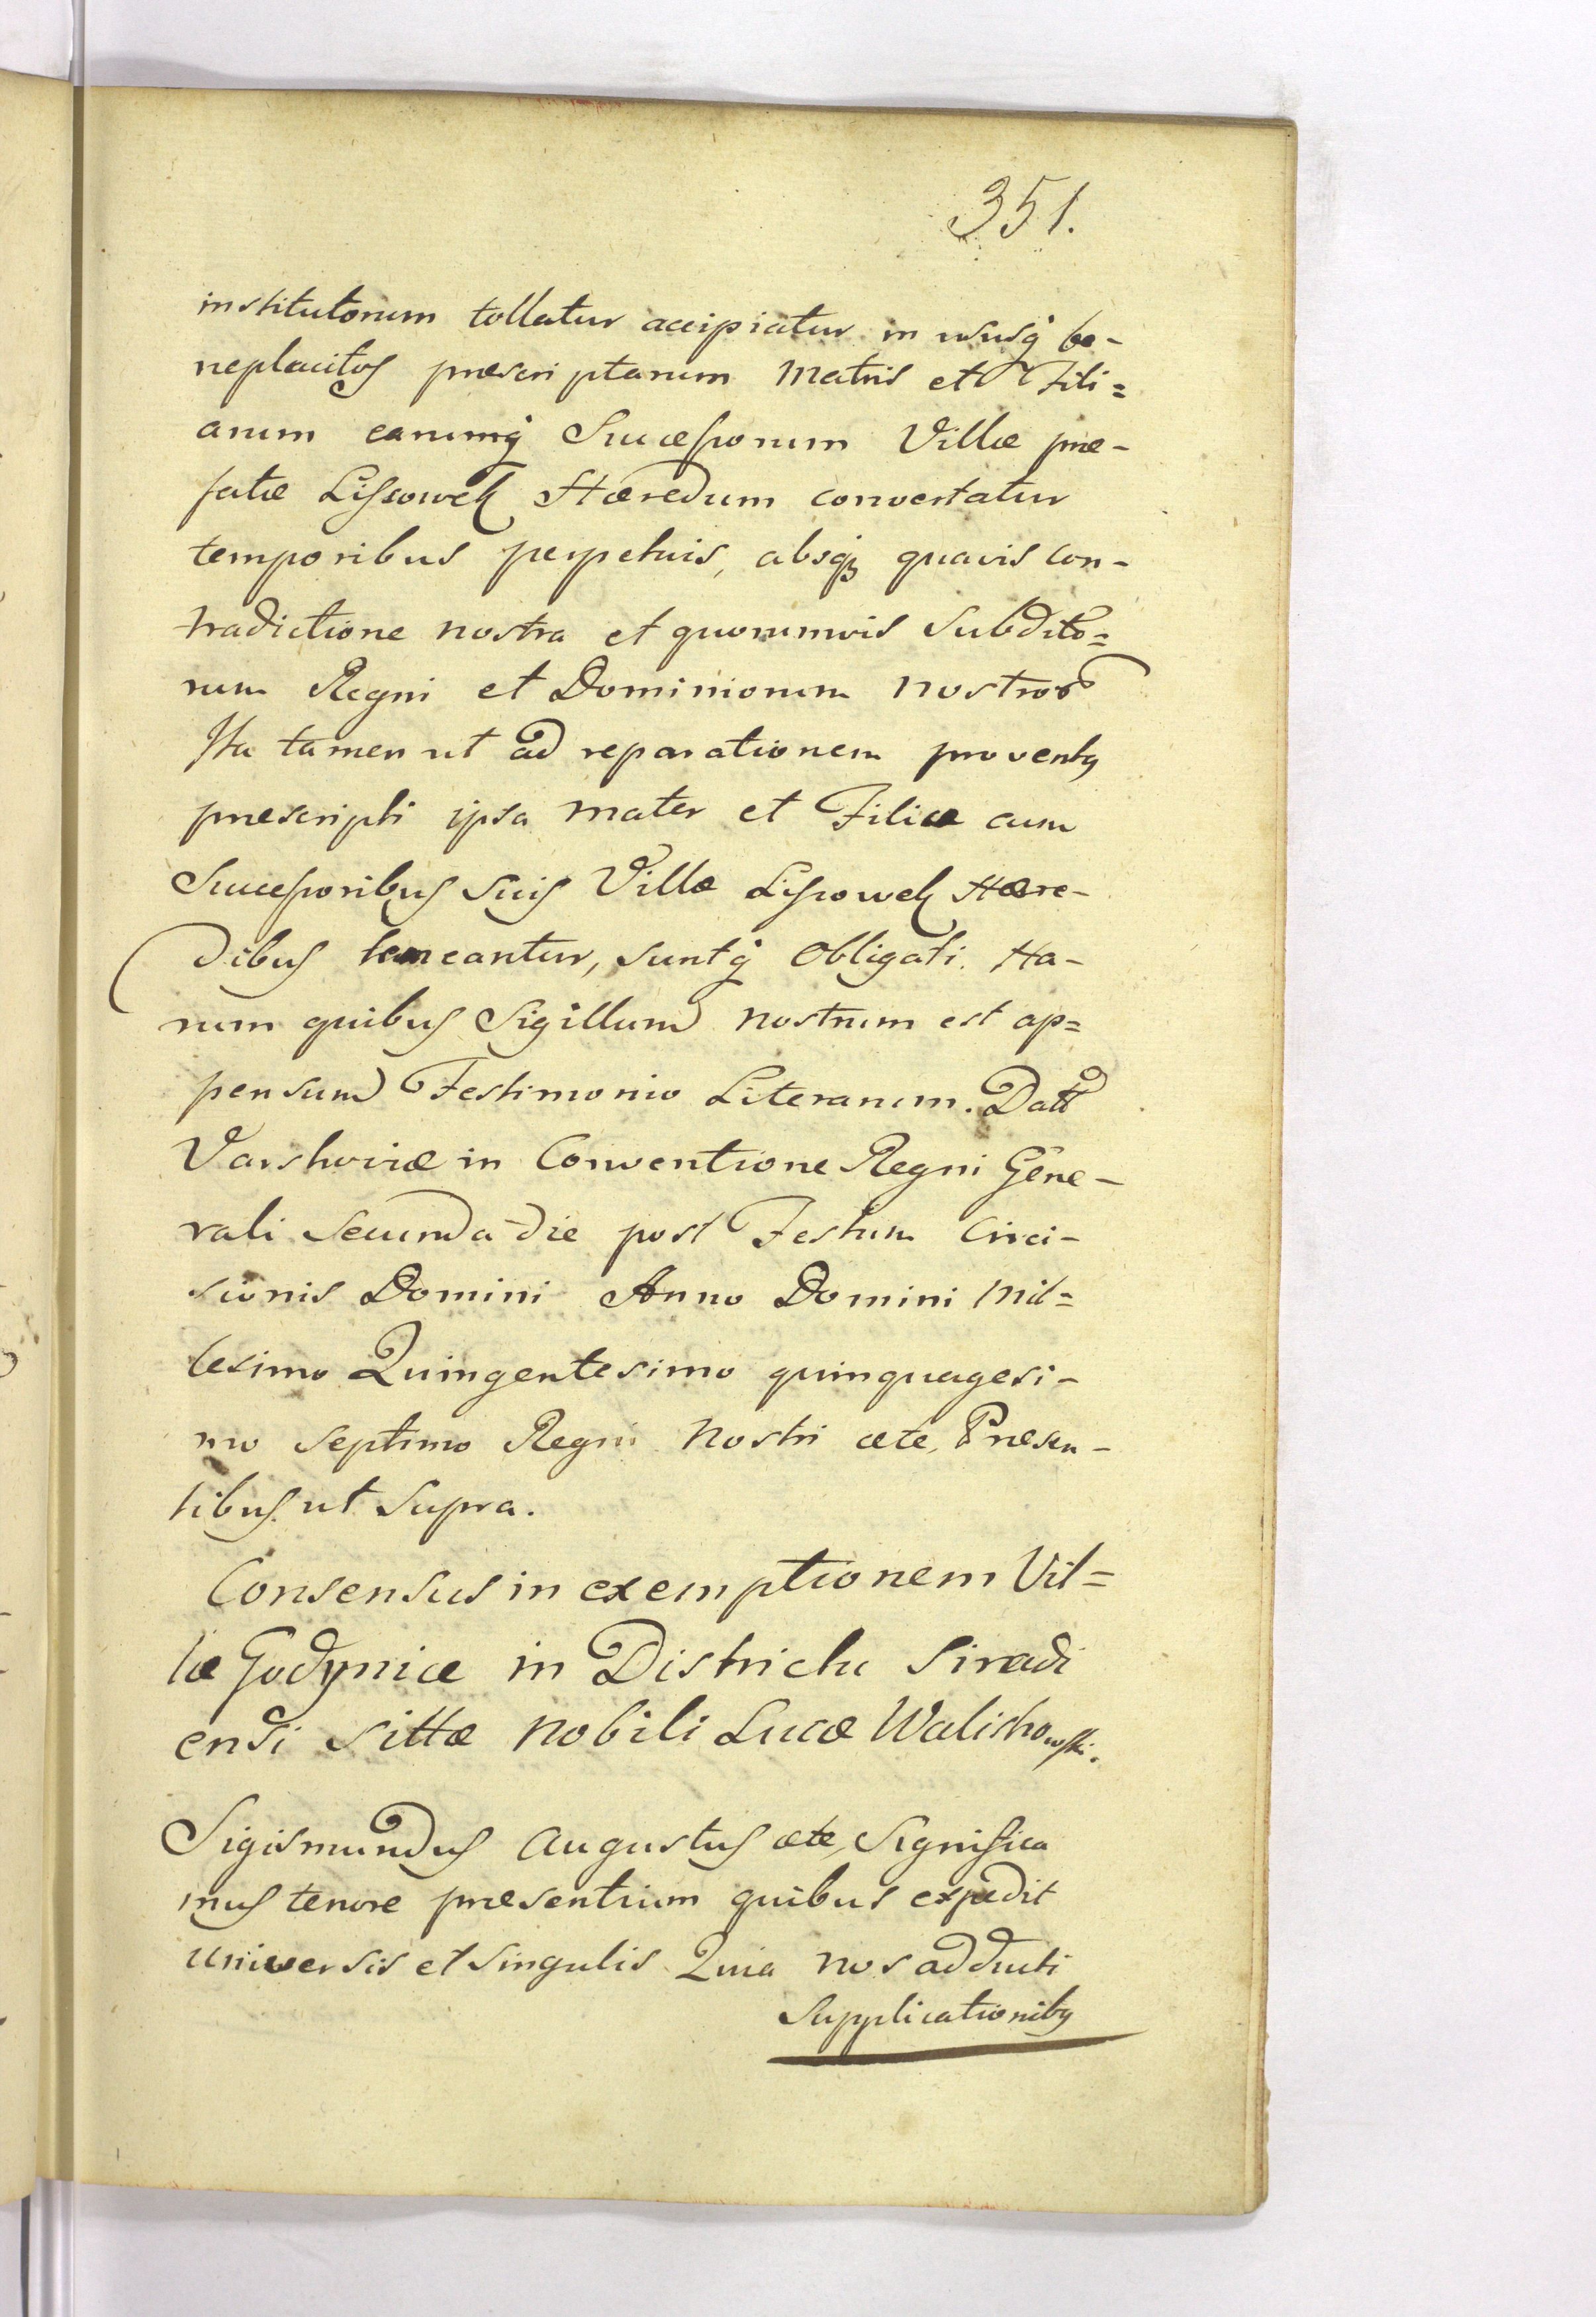 351.
institutorum tollatur accipiatur in ususq be-
neplacitos præscriptarum Matris et Fili=
arum earumq Successorum Villæ præ-
fatæ Lissowek Hæredum convertatur
temporibus perpetuis, absqz quavis con-
tradictione nostra et quorumvis Subdito=
rum Regni et Dominiorum nostror
Ita tamen ut ad reparationem proventus
præscripti ipsa mater et Filiæ cum
Successoribus Suis Villæ Lissowek Hære-
dibus teneantur, suntq obligati. Ha-
rum quibus Sigillum nostrum est ap=
pensum Testimonio Literarum. Datt
Varshoviæ in Conventione Regni Gene-
rali Secunda die post Festum Circi-
sionis Domini Anno Domini Mil=
lesimo Quingentesimo quinquagesi-
mo Septimo Regni Nostri æte, Præsen-
tibus ut Supra.
Consensus in exemptionem Vil=
læ Godynice in Districtu Siradi
ensi sittæ Nobili Lucæ Walichowski.
Sigismundus Augustus æte, Significa
mus tenore præsentium quibus expedit
universis et singulis Quia nos adducti
Supplicationibus